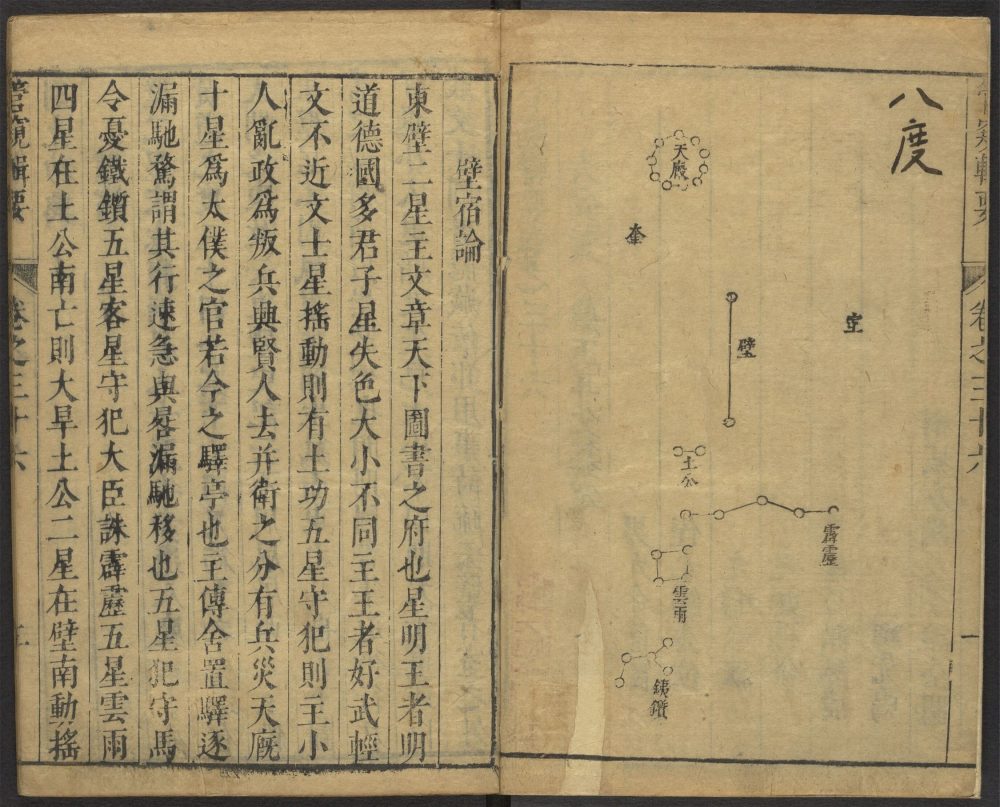 八度
室
壁
奎
天廐
土公
霹靂
雲雨
鈇鑕
卷之三十六
一
壁宿論
東壁二星主文章天下圖書之府也星明王者明
道德國多君子星失色大小不同主王者好武輕
文不近文士星搖動則有土功五星守犯則王小
人亂政為叛兵興賢人去并衛之分有兵災天廐
十星為太僕之官若今之驛亭也主傳舍置驛逐
漏馳騖謂其行速急與晷漏馳移也五星犯守馬
令憂鐵鑕五星客星守犯大臣誅霹靂五星雲雨
四星在土公南亡則大旱土公二星在壁南動搖
管窺輯要
卷之三十六